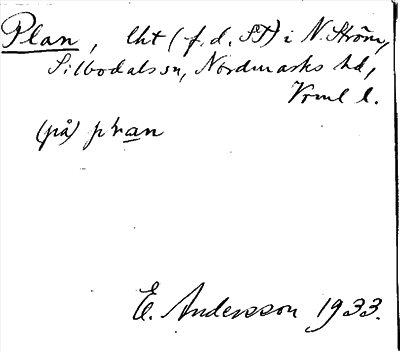 Plan, lht (f.d. ST) i N. Ström,
Silbodals sn, Nordmarks hd,
Vrml l.
(på) plran
E. Andersson 1933.